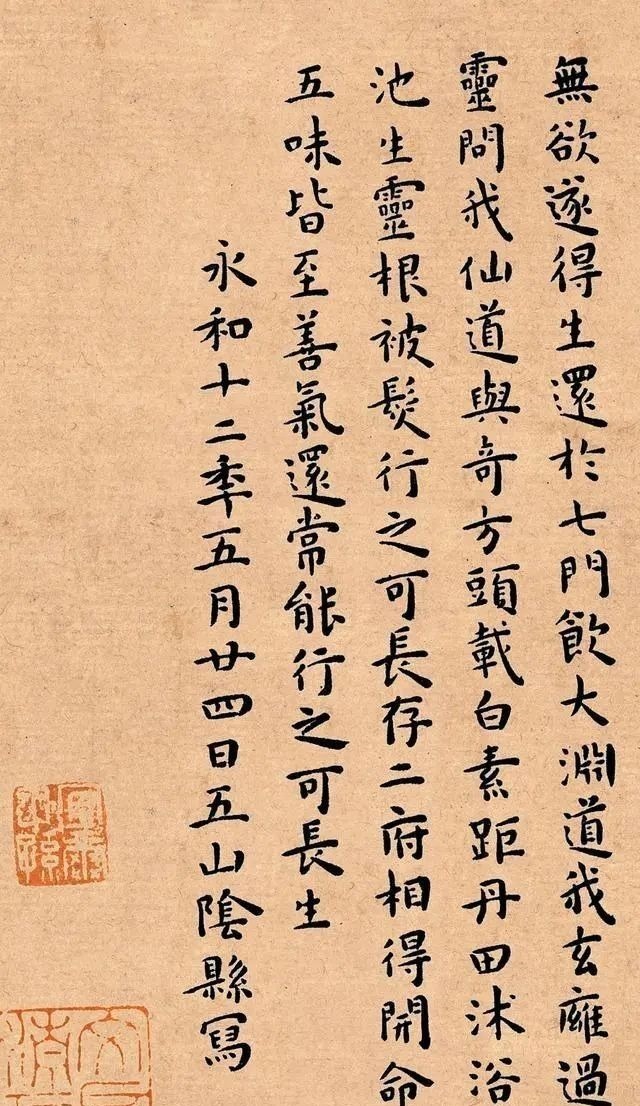 無欲遂得生還於七門飲大淵道我玄廱過
靈問我仙道與奇方頭載白素距丹田沐浴
池生靈根被髮行之可長存二府相得開命
五味皆至善氣還常能行之可長生
永和十二季五月廿四日五山陰縣寫